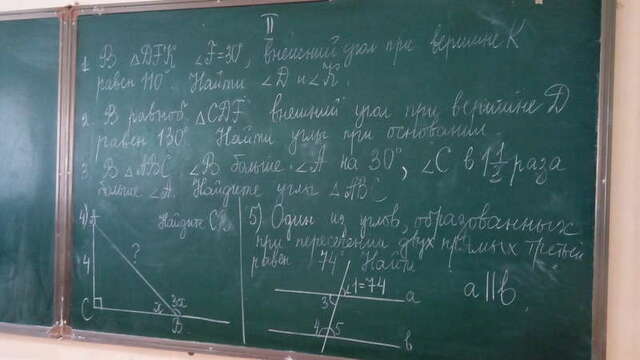 II
1. В △DFK ∠F=30°, внешний угол при вершине K
равен 110°. Найти ∠D и ∠K.
2. В равноб. △CDF внешний угол при вершине D
равен 130°. Найти углы при основании.
3. В △ABC ∠B больше ∠A на 30°, ∠C в 1 1/2 раза
больше ∠A. Найдите углы △ABC
4) A Найдите
4 ?
C x 3x
B
5) Один из углов, образованных
при пересечении двух прямых третьей
равен 74° Найти
∠1=74 a a||b
3
4 5
b